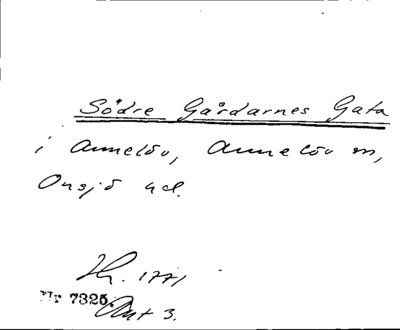 Södre Gårdarnes Gata
i Annelöv, Annelöv sn,
Onsjö hd.
Hr. 1771
Nr 7325.
Akt 3.